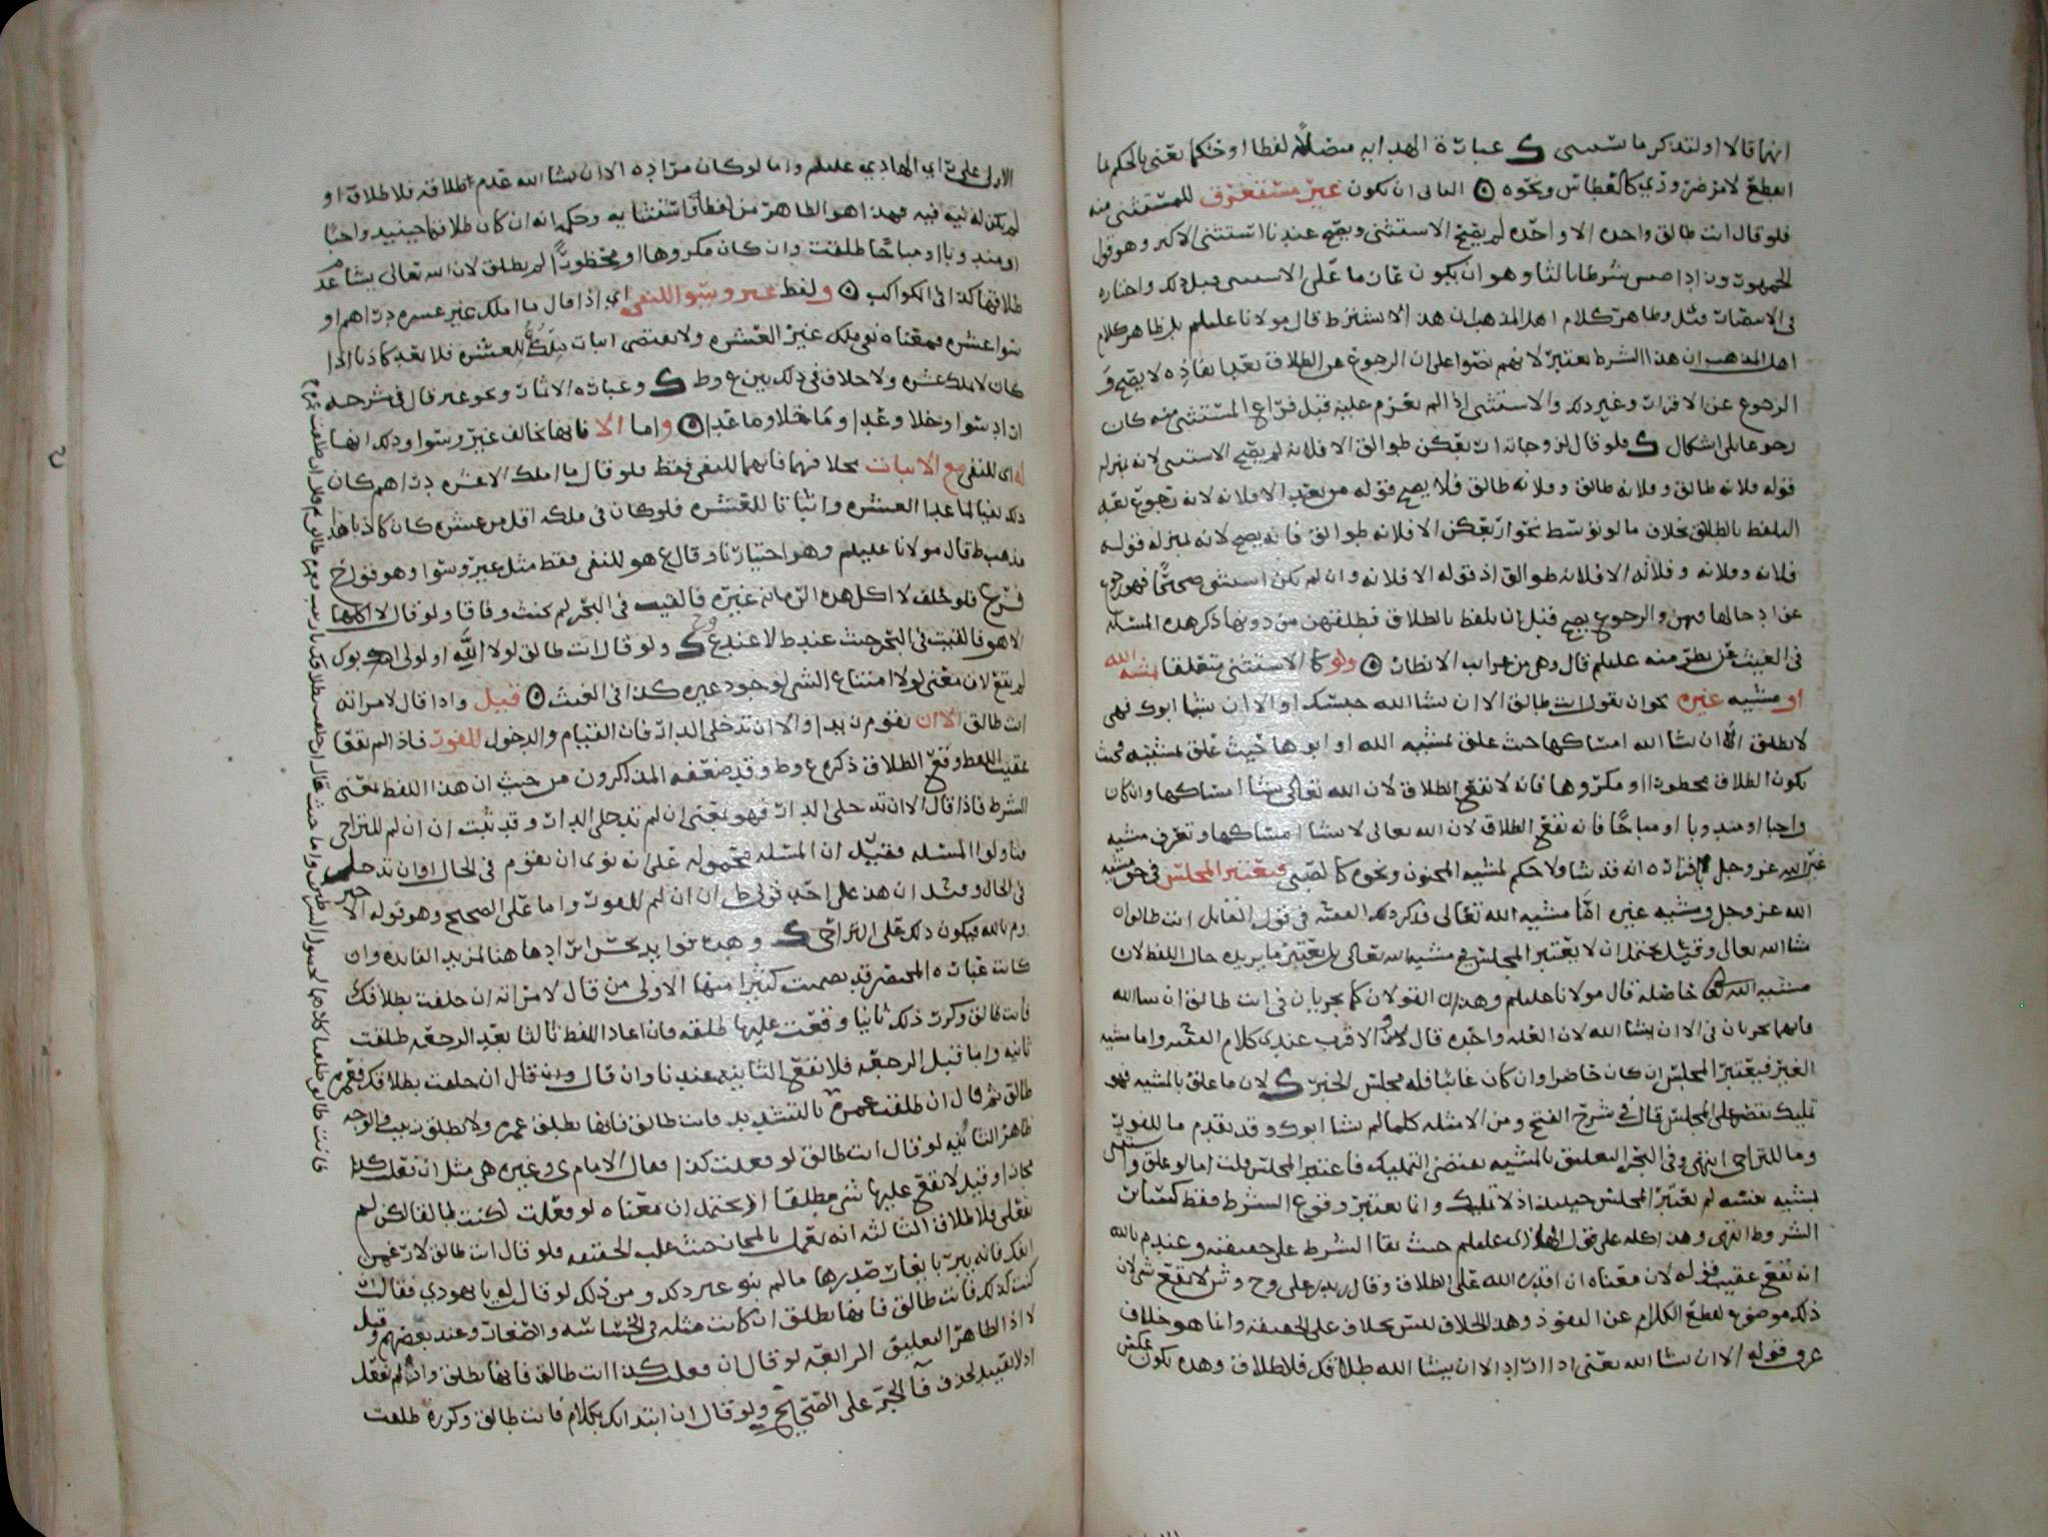 انها قالا او لتذكر ما سسى ك عبارة الهدايه متصلا لفظا او حكما يعنى بالحكم لما
انقطع لامر ضروري كالعطاس ونحوه ۞ الثانى ان يكون غير مستغرق للمستثنى منه
فلو قال انت طالق واحده الا واحده لم يصح الاستثنى ويصح عندنا استثنى الاكثر وهو قول
الجمهور وزاد شرطا ثالثا وهو ان يكون عازما على الاستثنى قبل ذلك واختاره
فى الانتصار وظاهر كلام اهل المذهب ان هذا لا يشترط قال مولانا عليلم بل ظاهر كلام
اهل المذهب ان هذا الشرط يعتبر لانهم نصوا على ان الرجوع عن الطلاق بعد نفاذه لا يصح و
الرجوع عن الاقرار وغير ذلك والاستثنى اذا لم يعزم عليه قبل فراغ المستثنى منه كان
رجوعا بلى اشكال ك فلو قال لزوجاته اربعكن طوالق الا فلانه لم يصح الاستثنى لانه بمنزله
قوله فلانه طالق وفلانه طالق وفلانه طالق فلا يصح قوله من بعد الا فلانه لانه رجوع بعد
التلفظ بالطلاق بخلاف ما لو توسط نحو اربعكن الا فلانه طوالق فانه يصح لانه بمنزله قوله
فلانه وفلانه وفلانه الا فلانه طوالق اذ قوله الا فلانه وان لم يكن استثنى صحيحا فهو رجوع
عن ادخالها فيهن والرجوع يصح قبل ان يلفظ بالطلاق فيطلقهن من دونها ذكر هذه المسئله
فى الغيث عن نظر منه عليلم قال وهى من غرايب الانظار ۞ ولو كان الاستثنى متعلقا بمشية الله
او مشيه غيره نحو ان يقول انت طالق الا ان يشا الله حبسك او الا ان يشا ابوك فهى
لا تطلق الا ان يشا الله امساكها حيث علق بمشيه الله او ابوها حيث علق بمشيته فحيث
يكون الطلاق محظورا او مكروها فانه لا يقع الطلاق لان الله تعالى يشا امساكها وان كان
واجبا او مندوبا او مباحا فانه يقع الطلاق لان الله تعالى لا يشا امساكها وتعرف مشيه
غير الله عز وجل باقراره انه قد شا ولا حكم لمشيه المجنون ونحوه كالصبي ويعتبر المجلس فى حق مشيه
الله عز وجل ومشيه غيره اما مشيه الله تعالى فذكر ذلك الفقيه فى قول القائل انت طالق ان
شا الله تعالى وقيل يحتمل ان لا يعتبر المجلس فى مشيه الله تعالى بل يعتبر ما يريده حال اللفظ لان
مشيه الله تعالى حاصله قال مولانا عليلم وهذان القولان كما يجريان فى انت طالق ان شا الله
فانهما يجريان فى الا ان يشا الله لان العله واحده قال والاقرب عندى كلام الفقيه واما مشيه
الغير فيعتبر المجلس ان كان حاضرا وان كان غائبا فله مجلس الخبر ك لان ما علق بالمشيه فهو
تمليك يقتصر على المجلس قال فى شرح الفتح ومن الامثله كلما لم يشا ابوك وقد تقدم ما للفور
وما للتراخى انتهى وفى البحر التعليق بالمشيه يقتضى التمليك فاعتبر المجلس قلت اما لو علق
بمشيه نفسه لم يعتبر المجلس حينئذ اذ لا تمليك وانما يعتبر وقوع الشرط فقط كسائر
الشروط انتهى وهذا كله على قول الهادى عليلم حيث بقا الشرط على حقيقته وعند م بالله
انه يقع عقيب قوله لان معناه ان اقدرنى الله على الطلاق وقال زيد بن على وح وش لا يقع شى لان
ذلك موضوع لقطع الكلام عن النفوذ وهذا الخلاف ليس بخلاف على الحقيقه وانما هو خلاف
عرف قوله الا ان يشا الله يعنى اذا اراد الا ان يشا الله طلاقك فلا طلاق وهذه تكون عكس
الاولى على راي الهادي عليلم واما لو كان مراده الا ان يشا الله عدم اطلاقه فلا طلاق او
لم يكن له نيه فيه فهذا هو الظاهر من لفظ الاستثنا به وحكمه انه ان كان طلاقها حينئذ واجبا
او مندوبا او مباحا طلقت وان كان مكروها او محظورا لم يطلق لان الله تعالى يشا عدم
طلاقها كذا فى الكواكب ۞ ولفظ غير وسوا للنفي اي اذا قال ما املك غير عشره دراهم او
سوا عشره فمعناه نفى ملك غير العشره ولا يقتضى اثبات ملك للعشره فلا يعد كاذبا اذا
كان لا يملك عشره ولا خلاف فى ذلك بين ع وط ك وعباره الاثمار ونحو غير قال فى شرحه
اراد سوا وخلا وعدا وما خلا وما عدا ۞ واما الا فانها تخالف غير وسوا وذلك انها
له اى للنفى مع الاثبات بخلافهما فانهما للنفى فقط فلو قال ما املك الا عشره دراهم كان
ذلك نفيا لما عدا العشره واثباتا للعشره فلو كان فى ملكه اقل من عشره كان كاذبا هذا
مذهب ط قال مولانا عليلم وهو اختيارنا وقال ع هو للنفى فقط مثل غير وسوا وهو قول ح
فرع فلو حلف لا اكل هذه الرمانه غيره فالقيت فى البحر لم يحنث وفاقا ولو قال لا اكلها
الا هو فالقيت فى البحر حنث عند ط لا عند ع ك ولو قال انت طالق لولا الله او لولى ابوك
لم يقع لان معنى لولا امتناع الشى لوجود غيره كذا فى الغيث ۞ قيل واذا قال لامراته
انت طالق الا ان يقوم زيد او الا ان تدخلى الدار فان القيام والدخول للفور فاذا لم يقعا
عقيب اللفظ وقع الطلاق ذكره ع وط وقد ضعفه المذاكرون من حيث ان هذا اللفظ بمعنى
الشرط فاذا قال الا ان تدخلى الدار فهو بمعنى ان لم تدخلى الدار وقد ثبت ان ان لم للتراخى
فتاولوا المسئله فقيل ان المسئله محموله على انه نوى ان يقوم فى الحال او ان تدخلى
فى الحال وقيل ان هذا على احد قولى ط ان ان لم للفور واما على الصحيح وهو قوله الاخير
وم بالله فيكون ذلك على التراخى ك وهذه فوايد يحسن ايرادها هنا لمزيد الفائده وان
كانت عباره المختصر قد تضمنت كثيرا منها الاولى من قال لامراته ان حلفت بطلاقك
فانت طالق وكرر ذلك ثانيا وقعت عليها طلقه فان اعاد اللفظ ثالثا بعد الرجعه طلقت
ثانيه واما قبل الرجعه فلا تقع الثانيه عندنا وان قال ان حلفت بطلاقك فعمره
طالق ثم قال ان طلقت عمره بالتشديد فانت طالق فانها تطلق عمره ولا تطلق زينب والوجه
ظاهر الثانيه لو قال انت طالق لو فعلت كذا فقال الامام ى وغيره هى مثل ان فعلت كذا
مجازا وقيل لا يقع عليها شى مطلقا اذ يحتمل ان معناه لو فعلت لكنت طالقا لكن لم
تفعلى فلا طلاق الثالثه انه يعمل بالمجاز حيث غلب الحقيقه فلو قال انت طالق لارغمن
انفك فانه يبر بايغار صدرها ما لم ينو غير ذلك ومن ذلك لو قال له يا يهودي فقال ان
كنت كذلك فانت طالق فانها تطلق ان كانت مثله فى الخساسه والصفات وعند بعضهم
لا اذ الظاهر التعليق الرابعه لو قال ان فعلت كذا انت طالق فانها تطلق وان لم تفعل
اذ لا تقييد لحذف فا الخبر على الصحيح ولو قال ان ابتداتك بكلام فانت طالق وكرره طلقت